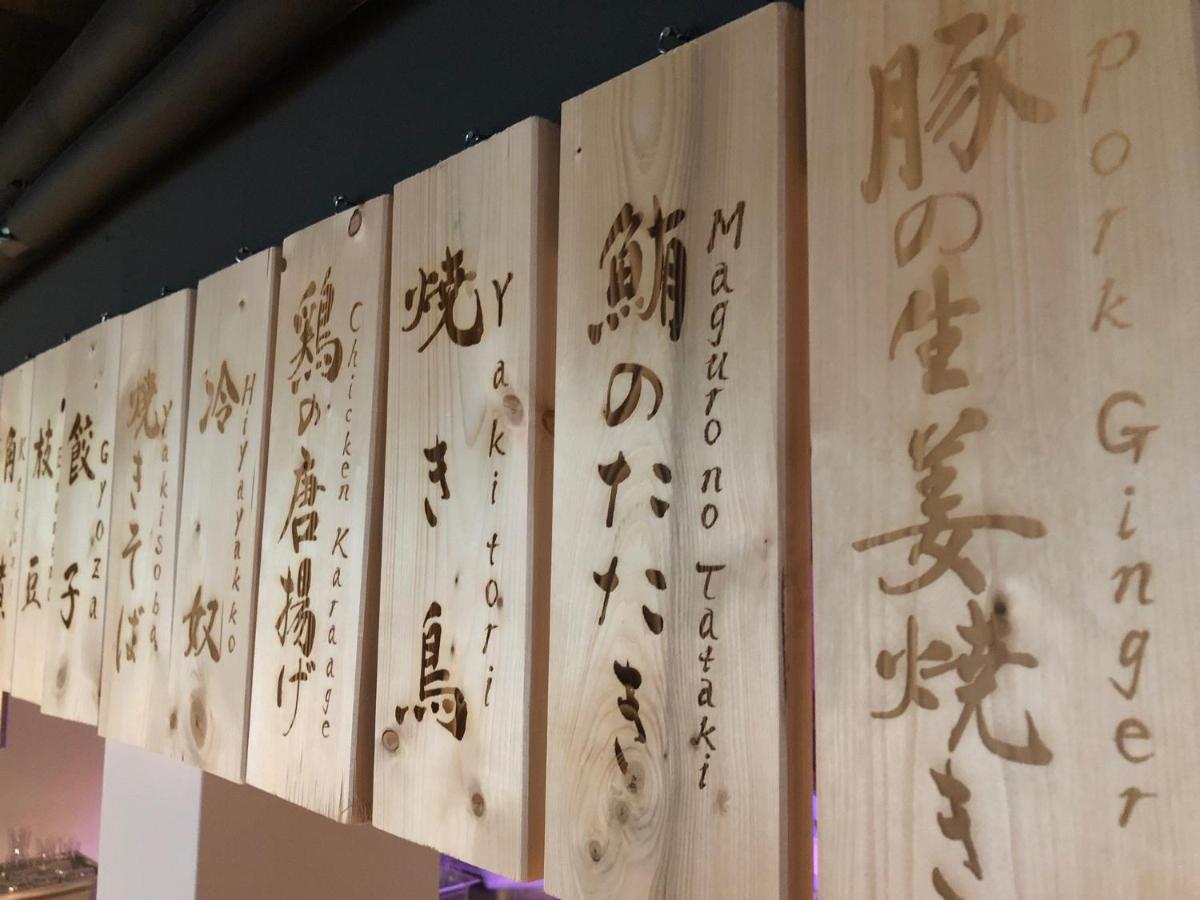 豚の生姜焼き
Pork Ginger
鮪のたたき
Maguro no Tataki
焼き鳥
Yakitori
鶏の唐揚げ
Chicken Karaage
冷奴
Hiyayakko
焼きそば
Yakisoba
餃子
Gyoza
枝豆
角